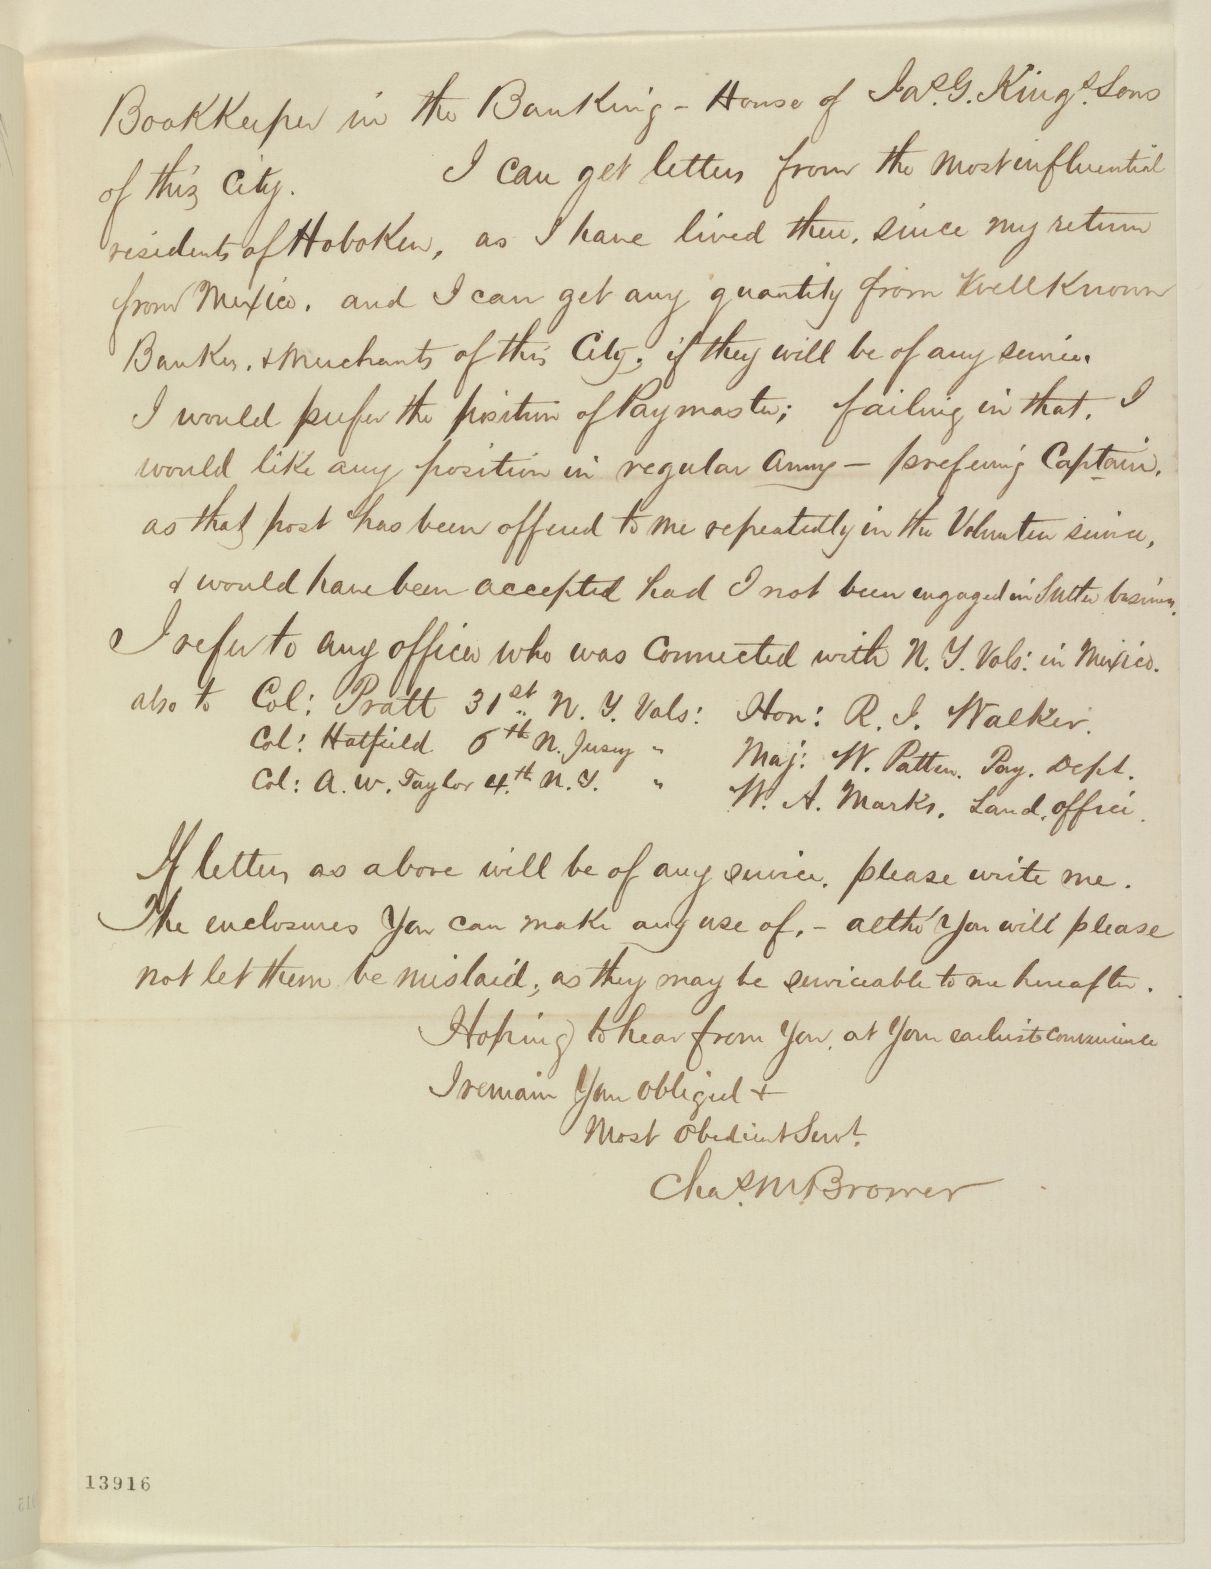 BookKeeper in the Banking-House of Jas. G. King's Sons
of this City. I can get letters from the most influential
residents of Hoboken, as I have lived there, since my return
from Mexico. and I can get any quantity from Well Known
Bankers, & Merchants of this City. if they will be of any service.
I would prefer the position of Paymaster; failing in that, I
would like any position in regular Army — prefering Captain,
as that post has been offered to me repeatedly in the Volunteer service,
& would have been accepted had I not been engaged in Sutler business.
I refer to any officer who was connected with N. Y. Vols: in Mexico.
also to Col: Pratt 31st N. Y. Vols: Hon: R. J. Walker.
Col: Hatfield 6th N. Jersey " Maj: W. Patten. Pay. Dept.
Col: A. W. Taylor 4th N. Y. " W. A. Marks. Land. office.
If letters as above will be of any service, please write me.
The enclosures You can make any use of, - altho' You will please
not let them be mislaid; as they may be serviceable to me hereafter.
Hoping to hear from You, at Your earliest convenience
I remain Your obliged &
Most Obedient Servt.
Chas. M. Brower
13916